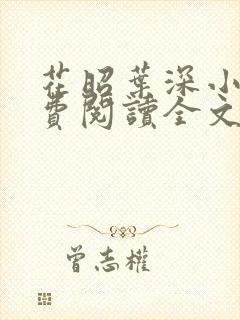 茌昭葉深小
費閱讀全文
曾志權